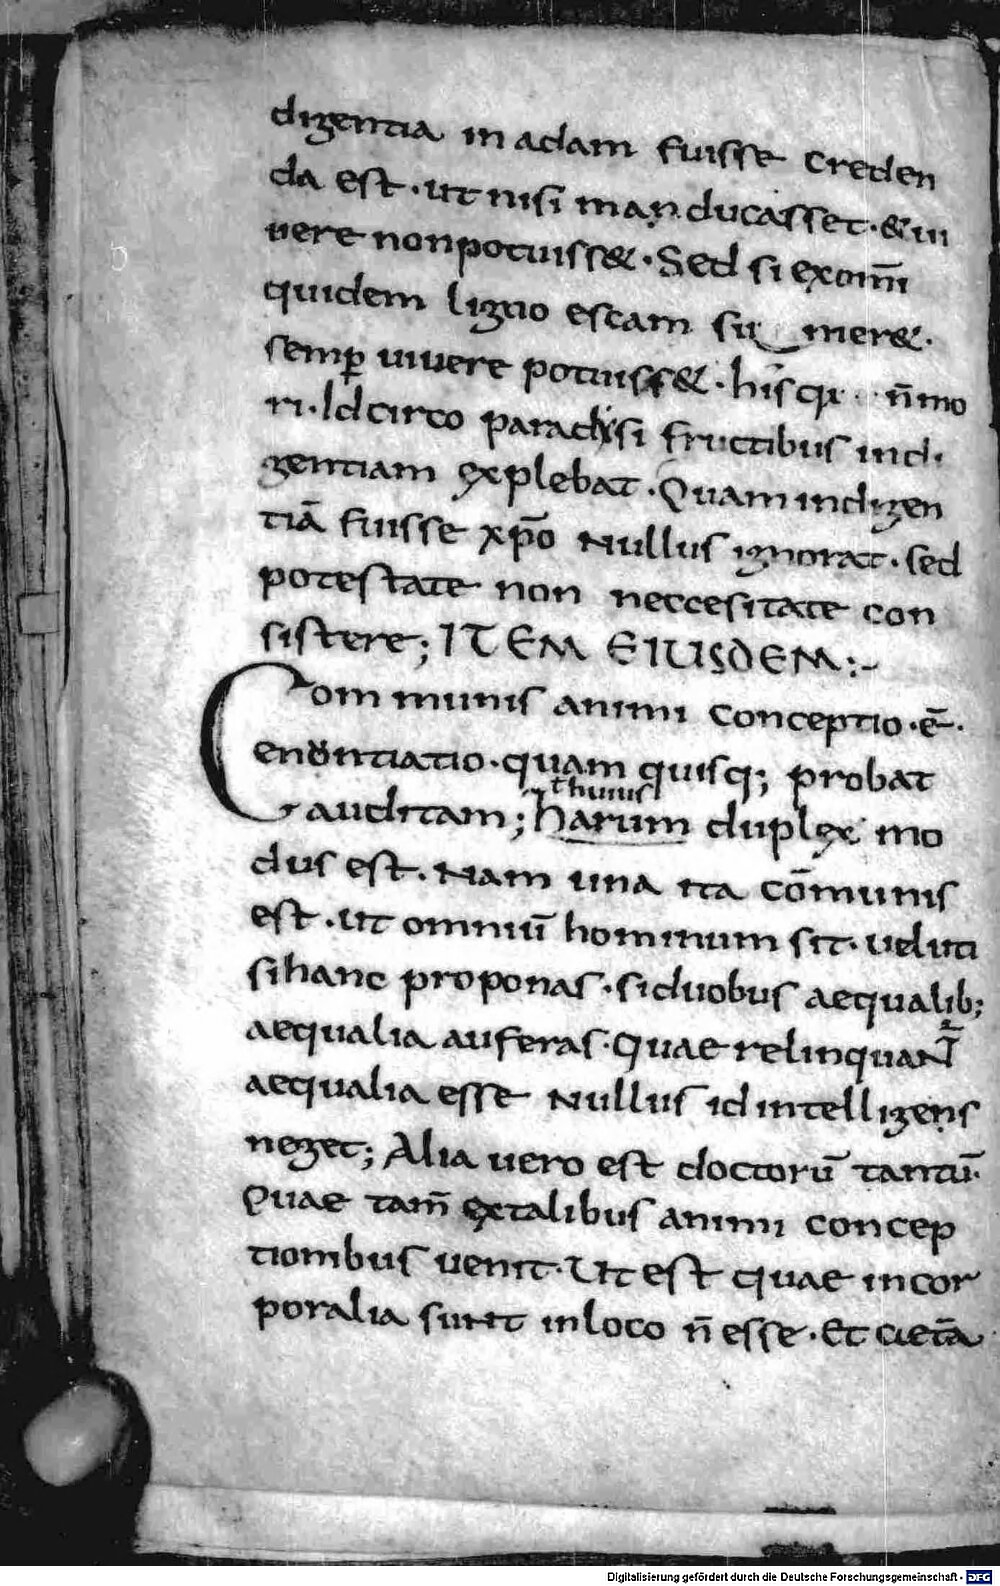 digentia in adam fuisse creden
da est · ut nisi manducasset · & ui
uere non potuiss& · Sed si ex om̄i
quidem ligno escam sumer& ·
semꝑ uiuere potuiss& · his n̄ mo
ri · Idcirco paradysi fructibus indi
gentiam explebat · Quam indigen
tiā fuisse xp̄o Nullus ignorat · sed
potestate non neccesitate con
sistere; ITEM EIUSDEM :-
Communis animi conceptio · ē ·
enontiatio · quam quisq; probat
auditam; harum duplex mo
dus est . Nam una ita cōmunis
est · ut omniū hominum sit · veluti
si hanc proponas · si duobus aequalib;
aequalia auferas · Quae relinquanT̄
aequalia esse Nullus id intelligens
neget; Alia uero est doctorū tantū ·
Quae tam̄ ex talibus animi concep
tionibus uenit · Ut est quae incor
poralia sunt in loco n̄ esse · Et cetā
Digitalisierung gefördert durch die Deutsche Forschungsgemeinschaft - DFG